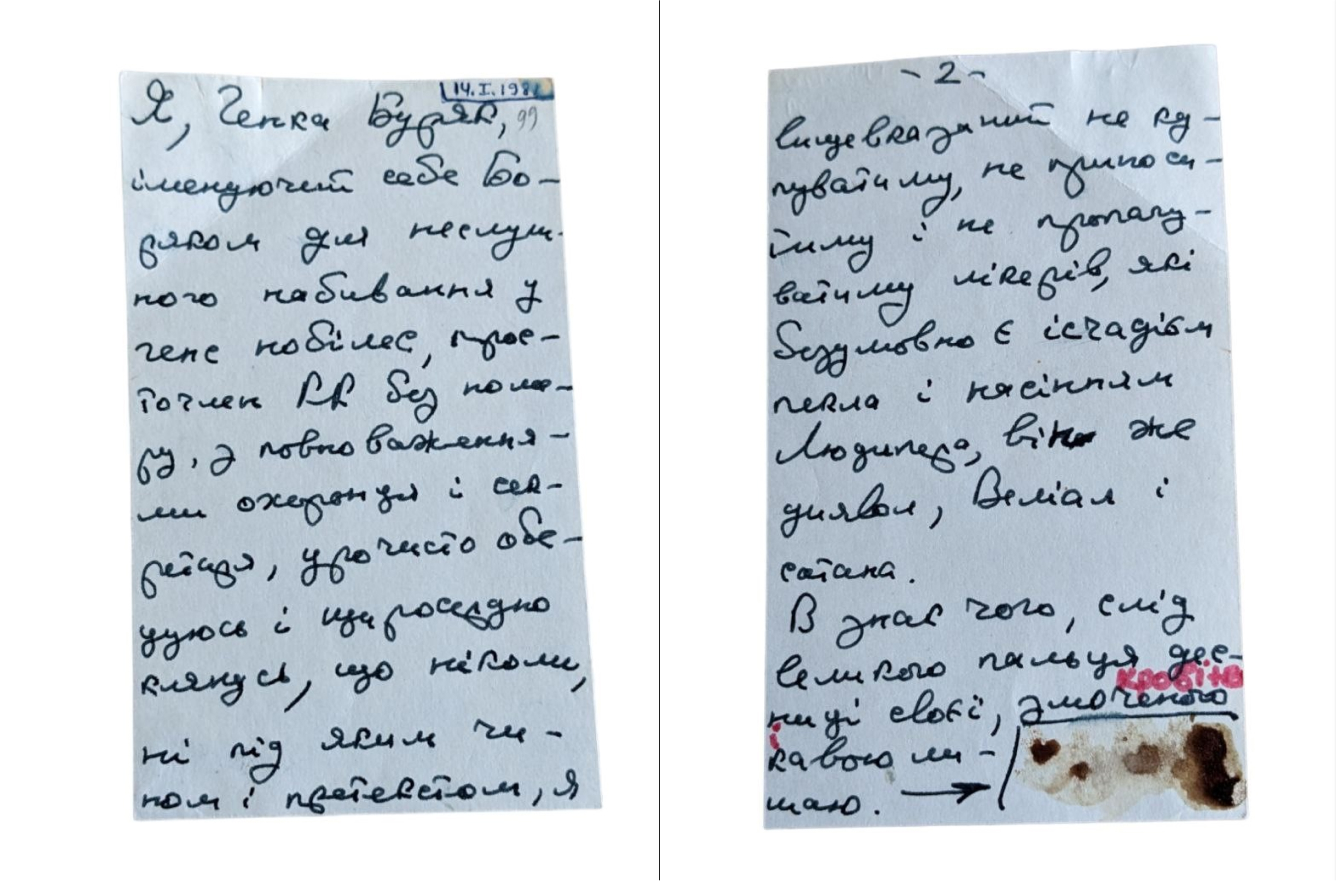 14.I.198
Я, Генка Буряк, 99
іменуючий себе Бо-
ряком для неслуш-
ного набивання у
гене нобілес, прос-
точлен РР без номе-
ру, з повноваження-
ми охоронця і сек-
ретаря, урочисто обі-
цуюсь і щиросердно
клянусь, що ніколи,
ні під яким чи-
ном і претекстом, я
- 2 -
вищевказаний не ку-
пуватиму, не приноси-
тиму і не пропагу-
ватиму лікерів, які
безумовно є ісчадієм
пекла і насінням
Люципера, він же
диявол, Веліал і
сатана.
В знак чого, слід
великого пальця дес-
кров'ю
ниці своєї, змоченого
і
кавою ли-
шаю.